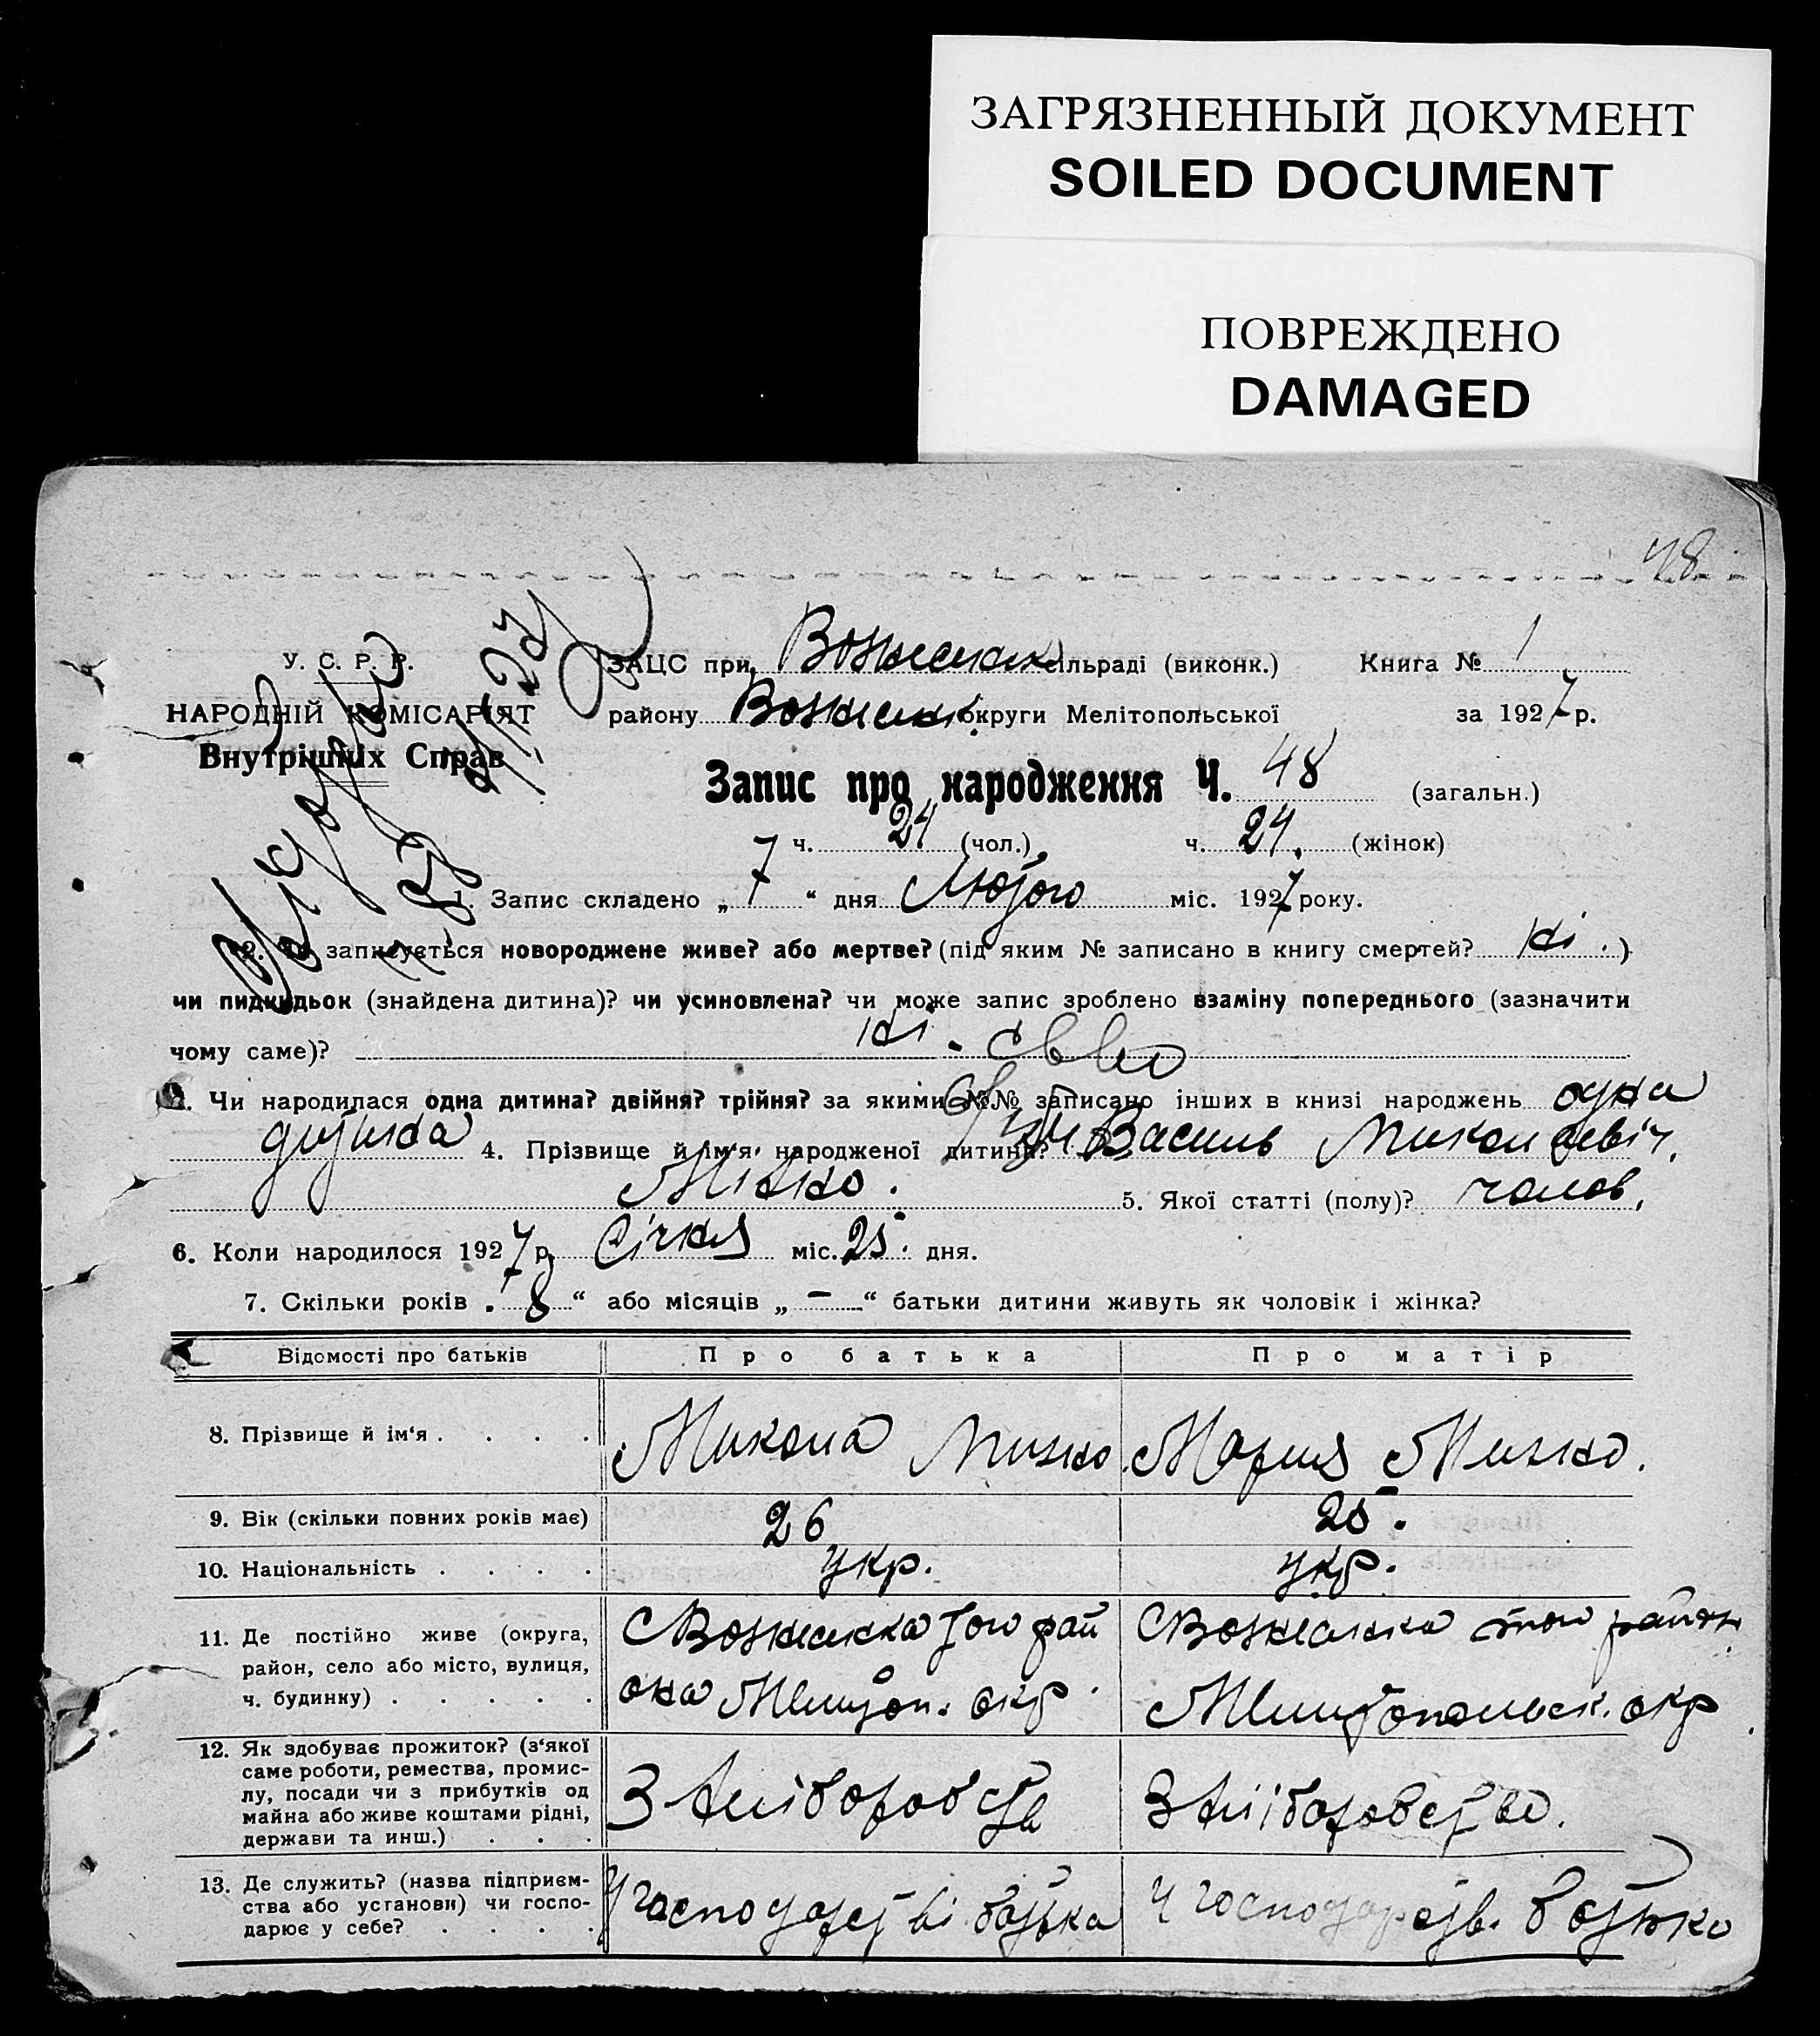 ЗАГРЯЗНЕННЫЙ ДОКУМЕНТ
SOILED DOCUMENT
ПОВРЕЖДЕНО
DAMAGED
48
У. С. Р. Р.
НАРОДНІЙ КОМІСАРІЯТ
Внутрішніх Справ
ЗАЦС при Вознесенск сільраді (виконк.) Книга № 1
району Вознесенк. округи Мелітопольської за 1927 р.
Запис про народження Ч. 48 (загальн.)
ч. 24 (чол.) ч. 24. (жінок)
1. Запис складено „ 7 “ дня Лютого міс. 1927 року.
2. Чи записується новороджене живе? або мертве? (під яким № записано в книгу смертей? ні .)
чи пидкидьок (знайдена дитина)? чи усиновлена? чи може запис зроблено взаміну попереднього (зазначити
чому саме)? ні.
3. Чи народилася одна дитина? двійня? трійня? за якими №№ записано інших в книзі народжень одна
дитина 4. Прізвище й ім‘я народженої дитини? Василь Миколаевіч.
Мизко. 5. Якої статті (полу)? чолов.
6. Коли народилося 1927 р. Січня міс. 25. дня.
7. Скільки років „ 8 “ або місяців „ — “ батьки дитини живуть як чоловік і жінка?
Відомості про батьків Про батька Про матір
8. Прізвище й ім‘я . . . . Микола Мизко Мария Мизко.
9. Вік (скільки повних років має) 26 25.
10. Національність . . . . укр. укр.
11. Де постійно живе (округа, С Вознесенка того рай С Вознесенка того район
район, село або місто, вулиця,
ч. будинку) . . . . . она Мелітоп. окр. Мелитопольск. окр
12. Як здобуває прожиток? (з‘якої
саме роботи, ремества, промис-
лу, посади чи з прибутків од
майна або живе коштами рідні, З хліборобств З хліборобство.
держави та инш.) . . .
13. Де служить? (назва підприєм-
ства або установи) чи госпо- У господарстві батька У господарств. батько
дарює у себе? . . . .